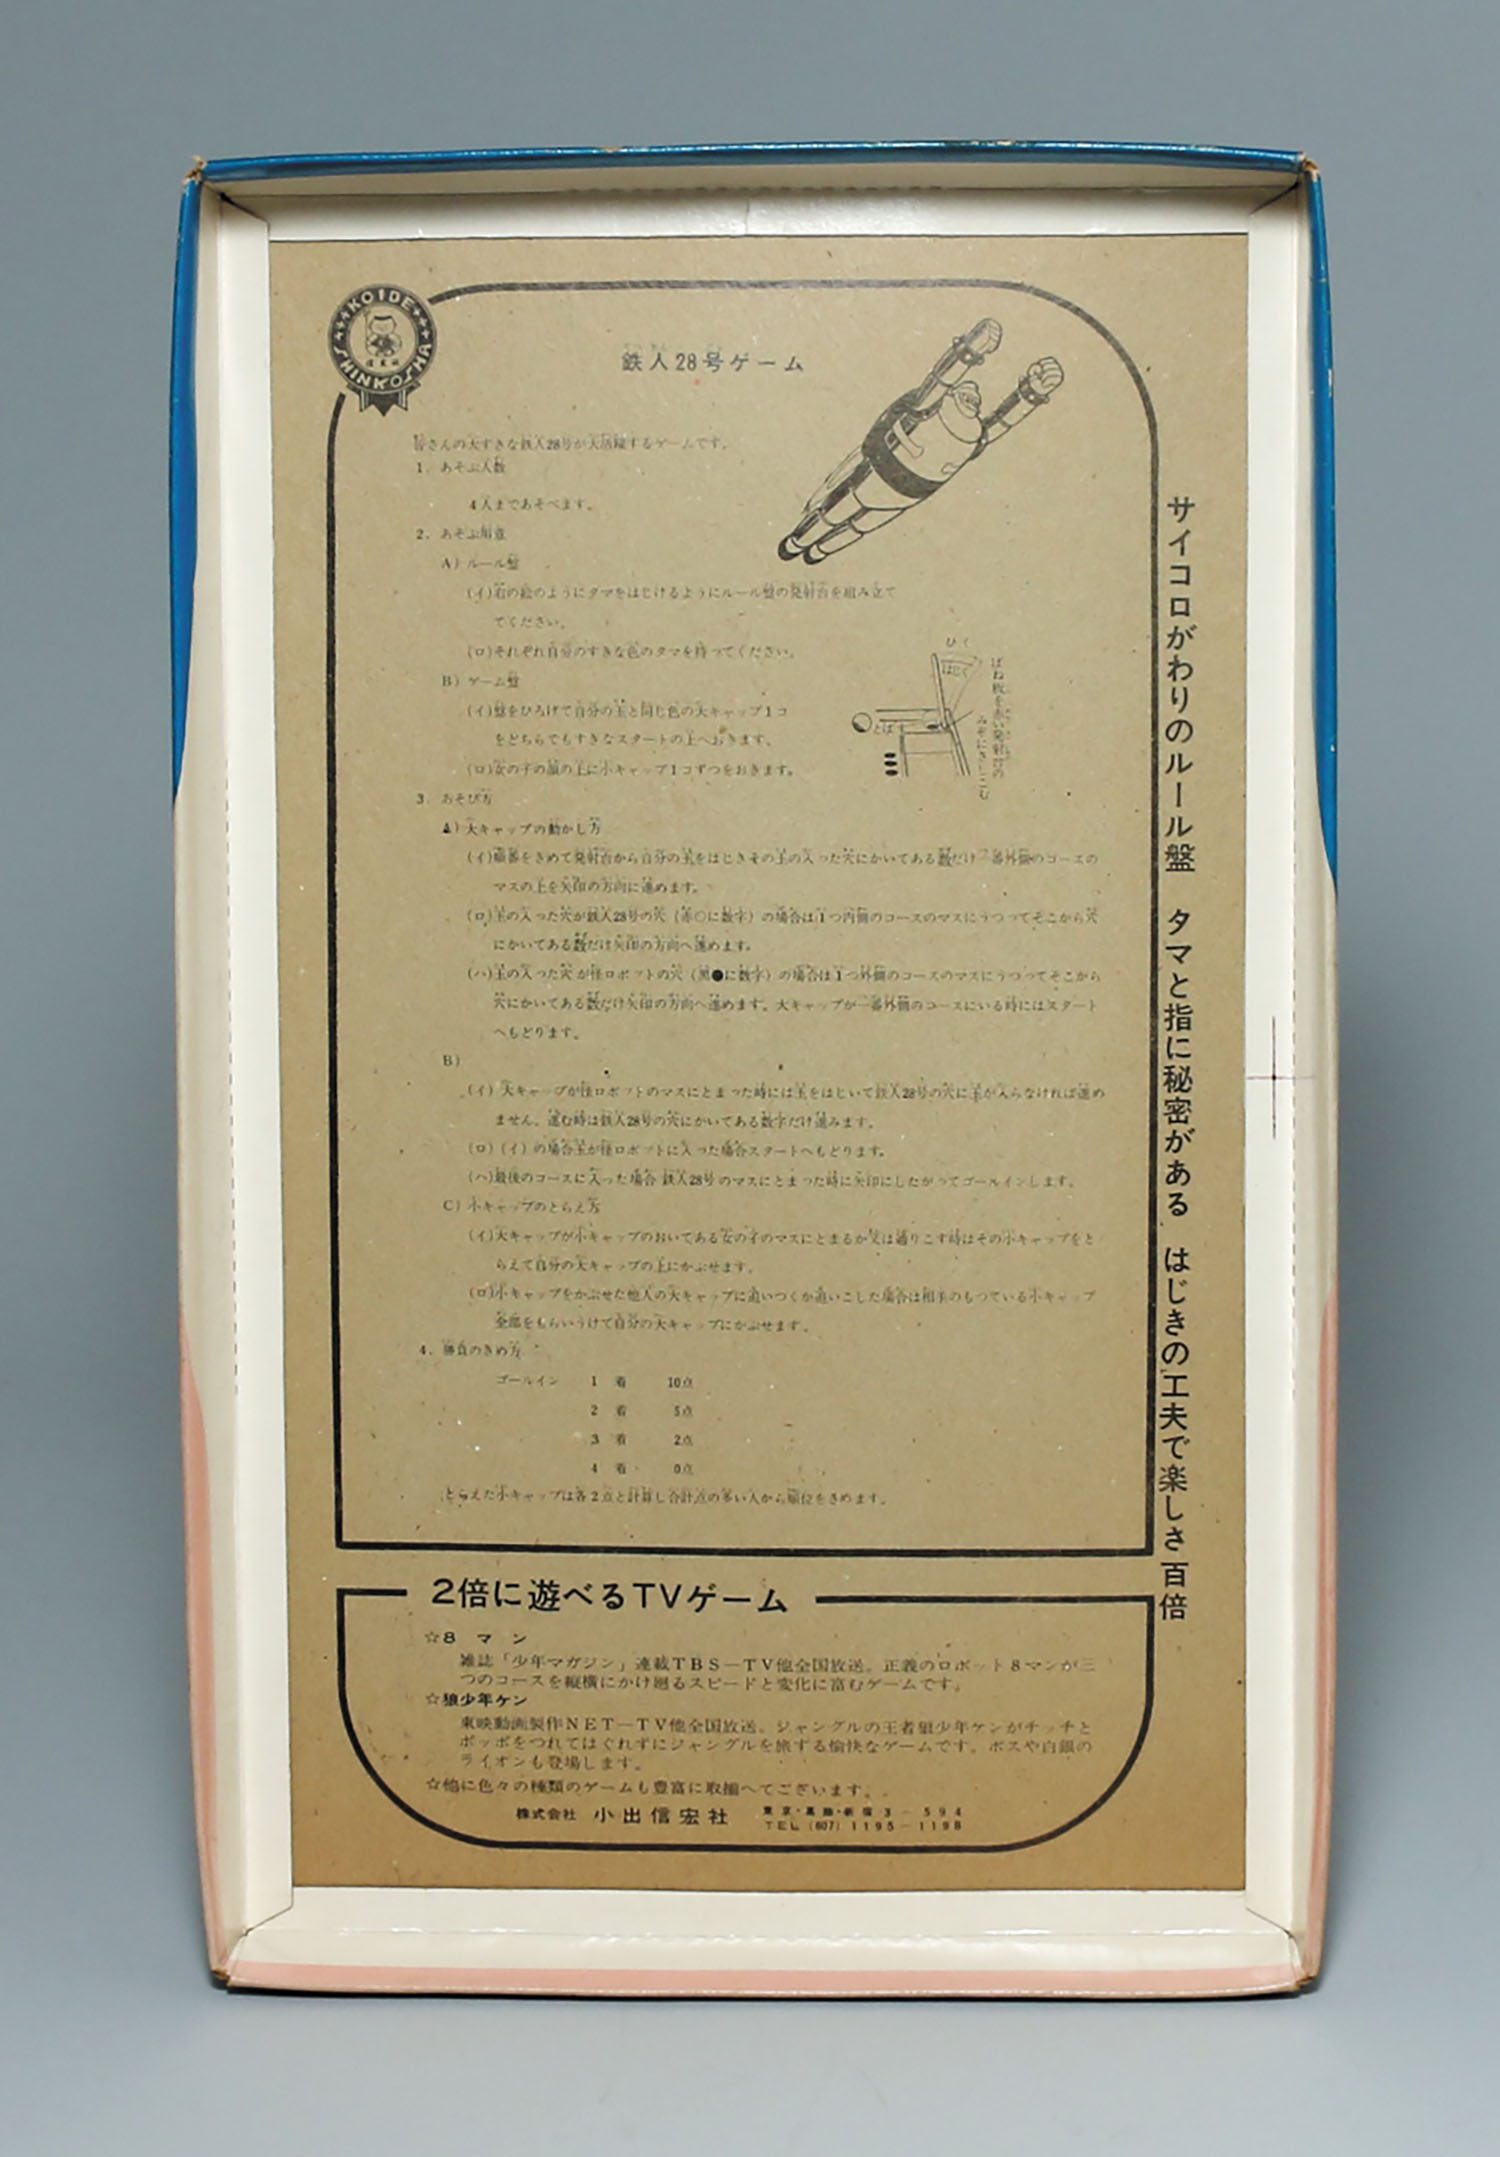 KOIDE
SHINKOSHA
鉄人28号ゲーム
皆さんの大すきな鉄人28号が大活躍するゲームです。
1. あそぶ人数
4人まであそべます。
2. あそぶ用意
A) ルール盤
(イ)右の絵のようにタマをはじけるようにルール盤の発射台を組み立て
てください。
(ロ)それぞれ自分のすきな色のタマを持ってください。
B) ゲーム盤
(イ)盤をひろげて自分の玉と同じ色の大キャップ1コ
をどちらでもすきなスタートの上へおきます。
(ロ)女の子の顔の上に小キャップ1コずつをおきます。
ひく
はじく
とばす
ばね板を赤い発射台の
みぞにさしこむ
3. あそび方
A) 大キャップの動かし方
(イ)順番をきめて発射台から自分の玉をはじきその玉の入った穴にかいてある数だけ一番外側のコースの
マスの上を矢印の方向に進めます。
(ロ)玉の入った穴が鉄人28号の穴（赤○に数字）の場合は1つ内側のコースのマスにうつってそこから穴
にかいてある数だけ矢印の方向へ進めます。
(ハ)玉の入った穴が怪ロボットの穴（黒●に数字）の場合は1つ外側のコースのマスにうつってそこから
穴にかいてある数だけ矢印の方向へ進めます。大キャップが一番外側のコースにいる時にはスタート
へもどります。
B)
(イ) 大キャップが怪ロボットのマスにとまった時には玉をはじいて鉄人28号の穴に玉が入らなければ進め
ません。進む時は鉄人28号の穴にかいてある数字だけ進みます。
(ロ) (イ) の場合玉が怪ロボットに入った場合スタートへもどります。
(ハ)最後のコースに入った場合 鉄人28号のマスにとまった時に矢印にしたがってゴールインします。
C) 小キャップのとらえ方
(イ)大キャップが小キャップのおいてある女の子のマスにとまるか又は通りこす時はその小キャップをと
らえて自分の大キャップの上にかぶせます。
(ロ)小キャップをかぶせた他人の大キャップに追いつくか追いこした場合は相手のもっている小キャップ
全部をもらいうけて自分の大キャップにかぶせます。
4. 勝負のきめ方
ゴールイン 1 着 10点
2 着 5点
3 着 2点
4 着 0点
とらえた小キャップは各2点と計算し合計点の多い人から順位をきめます。
サイコロがわりのルール盤 タマと指に秘密がある はじきの工夫で楽しさ百倍
2倍に遊べるTVゲーム
☆8 マン
雑誌「少年マガジン」連載TBS－TV他全国放送。正義のロボット8マンが三
つのコースを縦横にかけ廻るスピードと変化に富むゲームです。
☆狼少年ケン
東映動画製作NET－TV他全国放送。ジャングルの王者狼少年ケンがチッチと
ポッポをつれてはぐれずにジャングルを旅する愉快なゲームです。ボスや白銀の
ライオンも登場します。
☆他に色々の種類のゲームも豊富に取揃へてございます。
株式会社 小出信宏社
東京・葛飾・新宿3－594
TEL (607) 1195－1198